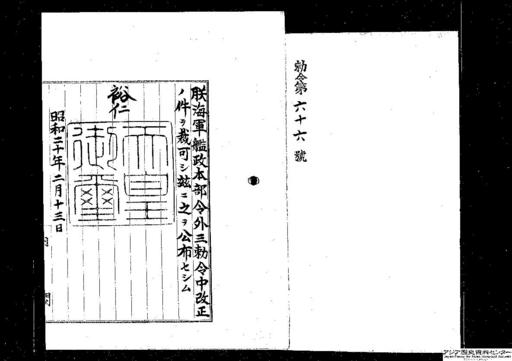 勅令第六十六號
朕海軍艦政本部令外三勅令中改正
ノ件ヲ裁可シ玆ニ之ヲ公布セシム
裕仁
天皇御璽
昭和二十年二月十三日
内閣
アジア歴史資料センター